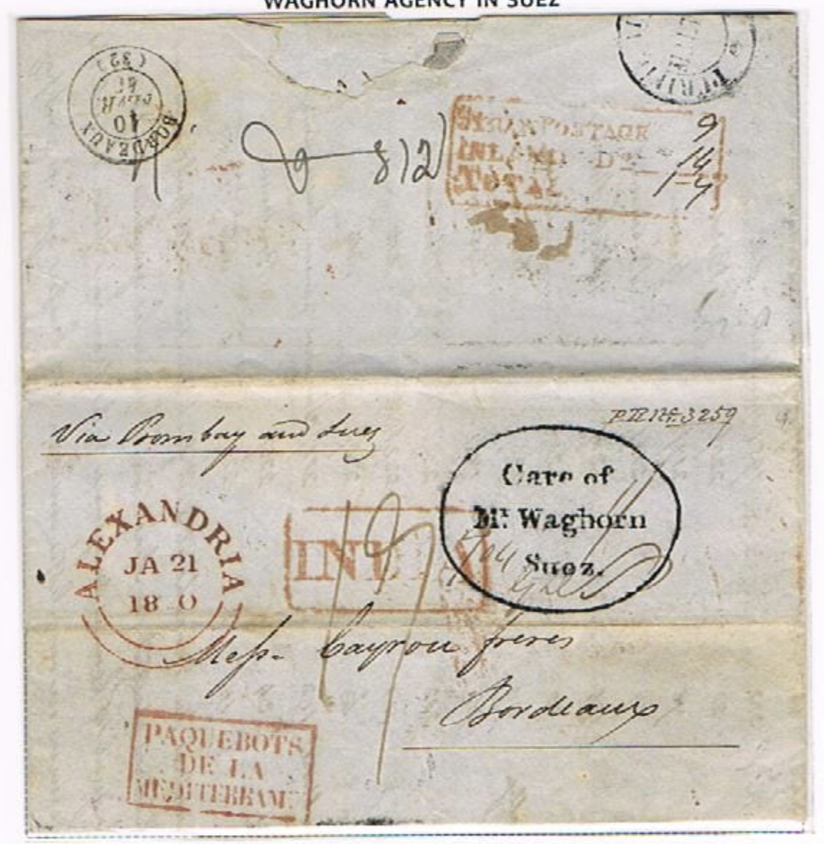 WAGHORN AGENCY IN SUEZ
BORDEAUX
10
(32)
812
POSTAGE 9
INLAND Do 14
TOTAL 1-7
Via Bombay and Suez
3259
Care of
Mr. Waghorn
Suez.
ALEXANDRIA
JA 21
18 0
INDIA
Messrs Cayrou frères
Bordeaux
PAQUEBOTS
DE LA
MEDITERRANE